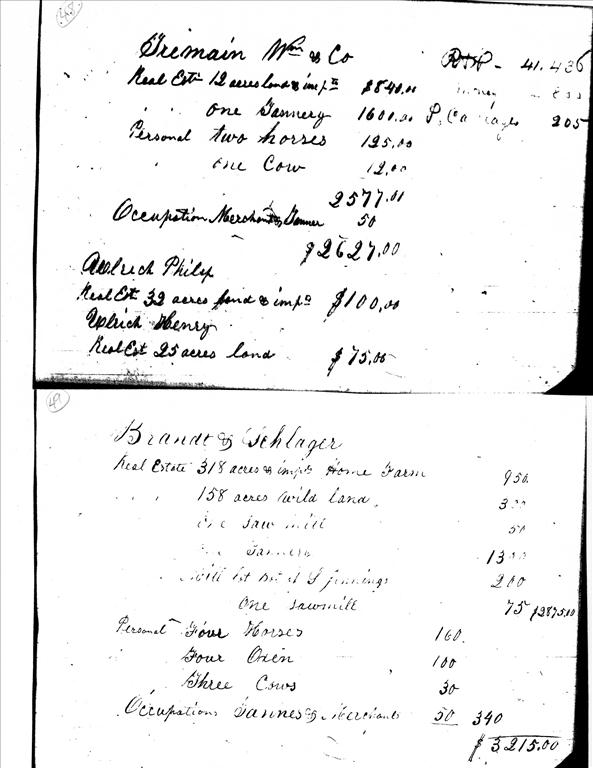 348
Tremain Wm & Co
R.E.P - 41.436
Real Estt 12 acres land & impts $840.00
money
" " one Tannery 1600.00
P. Carriages 205
Personal two horses 125.00
" one Cow 12.00
2577.00
Occupation Merchant & Tanner 50
$2627.00
Philip
Real Est 32 acres land & impts $100.00
Henry
Real Est 25 acres land $75.00
49
Brandt & Schlager
Real Estate 318 acres & impts Home Farm 950.
" " 158 acres wild land. 300
One Saw mill 50
One Tannery 1300
Mill lot bot of S Jennings 200
One Sawmill 75 $2875.00
Personal Four Horses 160.
Four Oxen 100
Three Cows 30
Occupations Tanners & Merchants 50 340
$3215.00